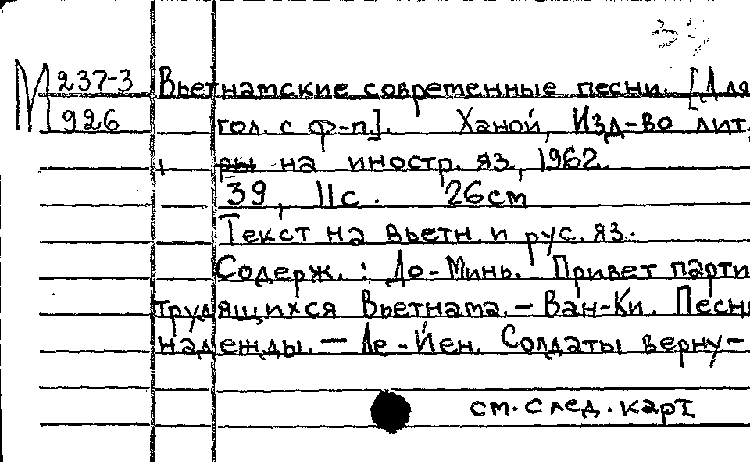 М 237-3 Вьетнамские современные песни. [Для
926 гол. с ф-п.]. Ханой, Изд-во лит.
ры на иностр. яз., 1962.
39, IIс. 26см
Текст на вьетн. и рус. яз.
Содерж.: До-Минь. Привет парти
трудящихся Вьетнама. – Ван-Ки. Песнь
надежды. – Ле-Йен. Солдаты верну-
см. след. карт